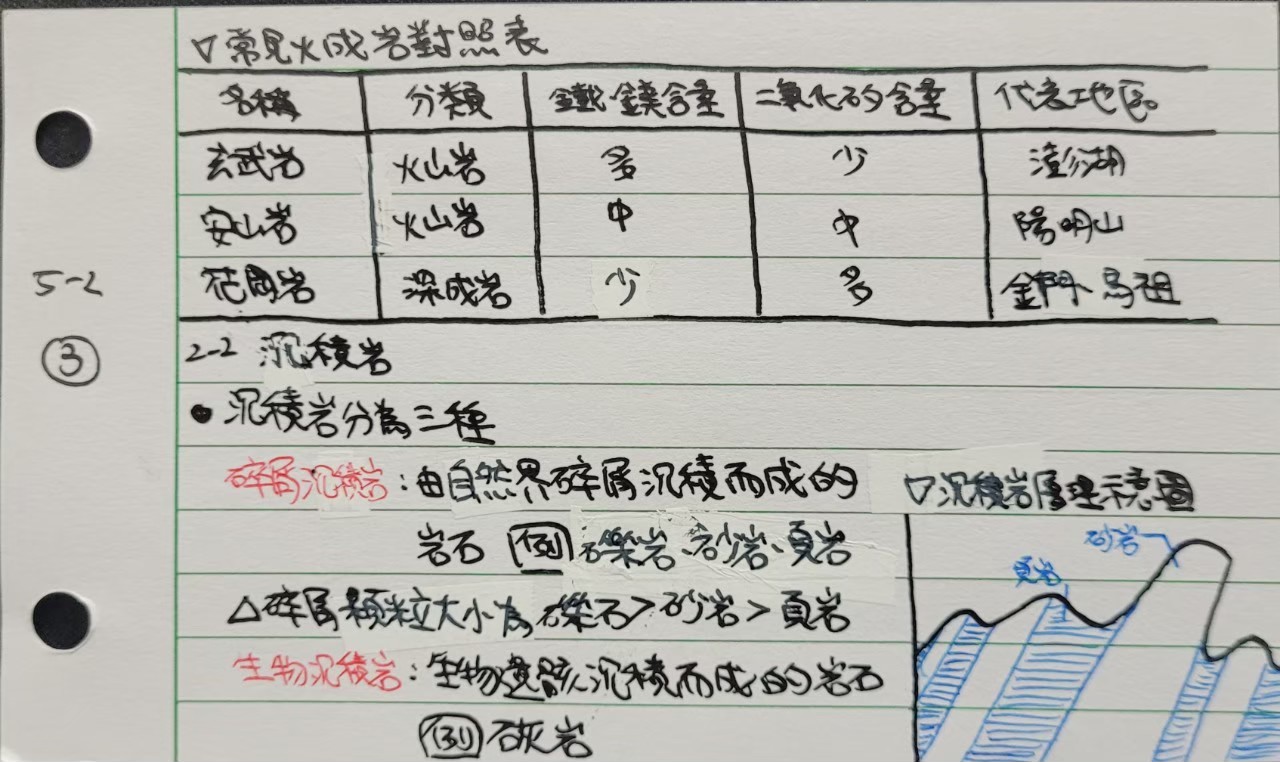 ▽常見火成岩對照表
名稱 分類 鐵、鎂含量 二氧化矽含量 代表地區
玄武岩 火山岩 多 少 澎湖
安山岩 火山岩 中 中 陽明山
花崗岩 深成岩 少 多 金門、馬祖
5-2
③
2-2 沉積岩
● 沉積岩分為三種
碎屑沉積岩：由自然界碎屑沉積而成的
岩石 例 礫岩、砂岩、頁岩
△碎屑顆粒大小為 礫石>砂岩>頁岩
生物沉積岩：生物遺骸沉積而成的岩石
例 石灰岩
▽沉積岩層理示意圖
砂岩
頁岩